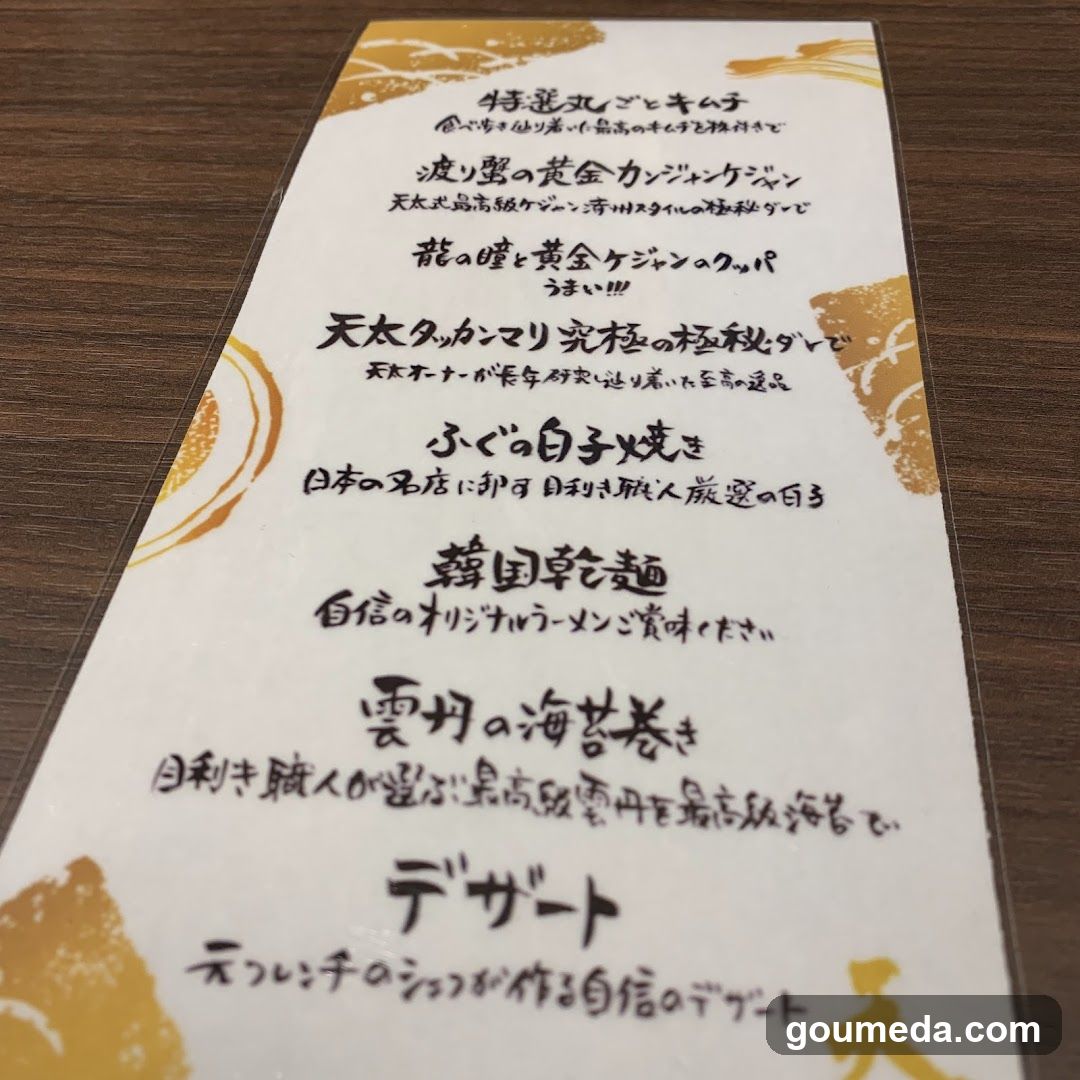 特選丸ごとキムチ
食べ歩き辿り着いた最高のキムチを株付きで
渡り蟹の黄金カンジャンケジャン
天太式最高級ケジャン済州スタイルの極秘ダレで
龍の瞳と黄金ケジャンのクッパ
うまい!!!
天太タッカンマリ 究極の極秘ダレで
天太オーナーが長年研究し辿り着いた至高の逸品
ふぐの白子焼き
日本の名店に卸す目利き職人厳選の白子
韓国乾麺
自信のオリジナルラーメンご賞味ください
雲丹の海苔巻き
目利き職人が選ぶ最高級雲丹を最高級海苔で
デザート
元フレンチのシェフが作る自信のデザート
天
goumeda.com